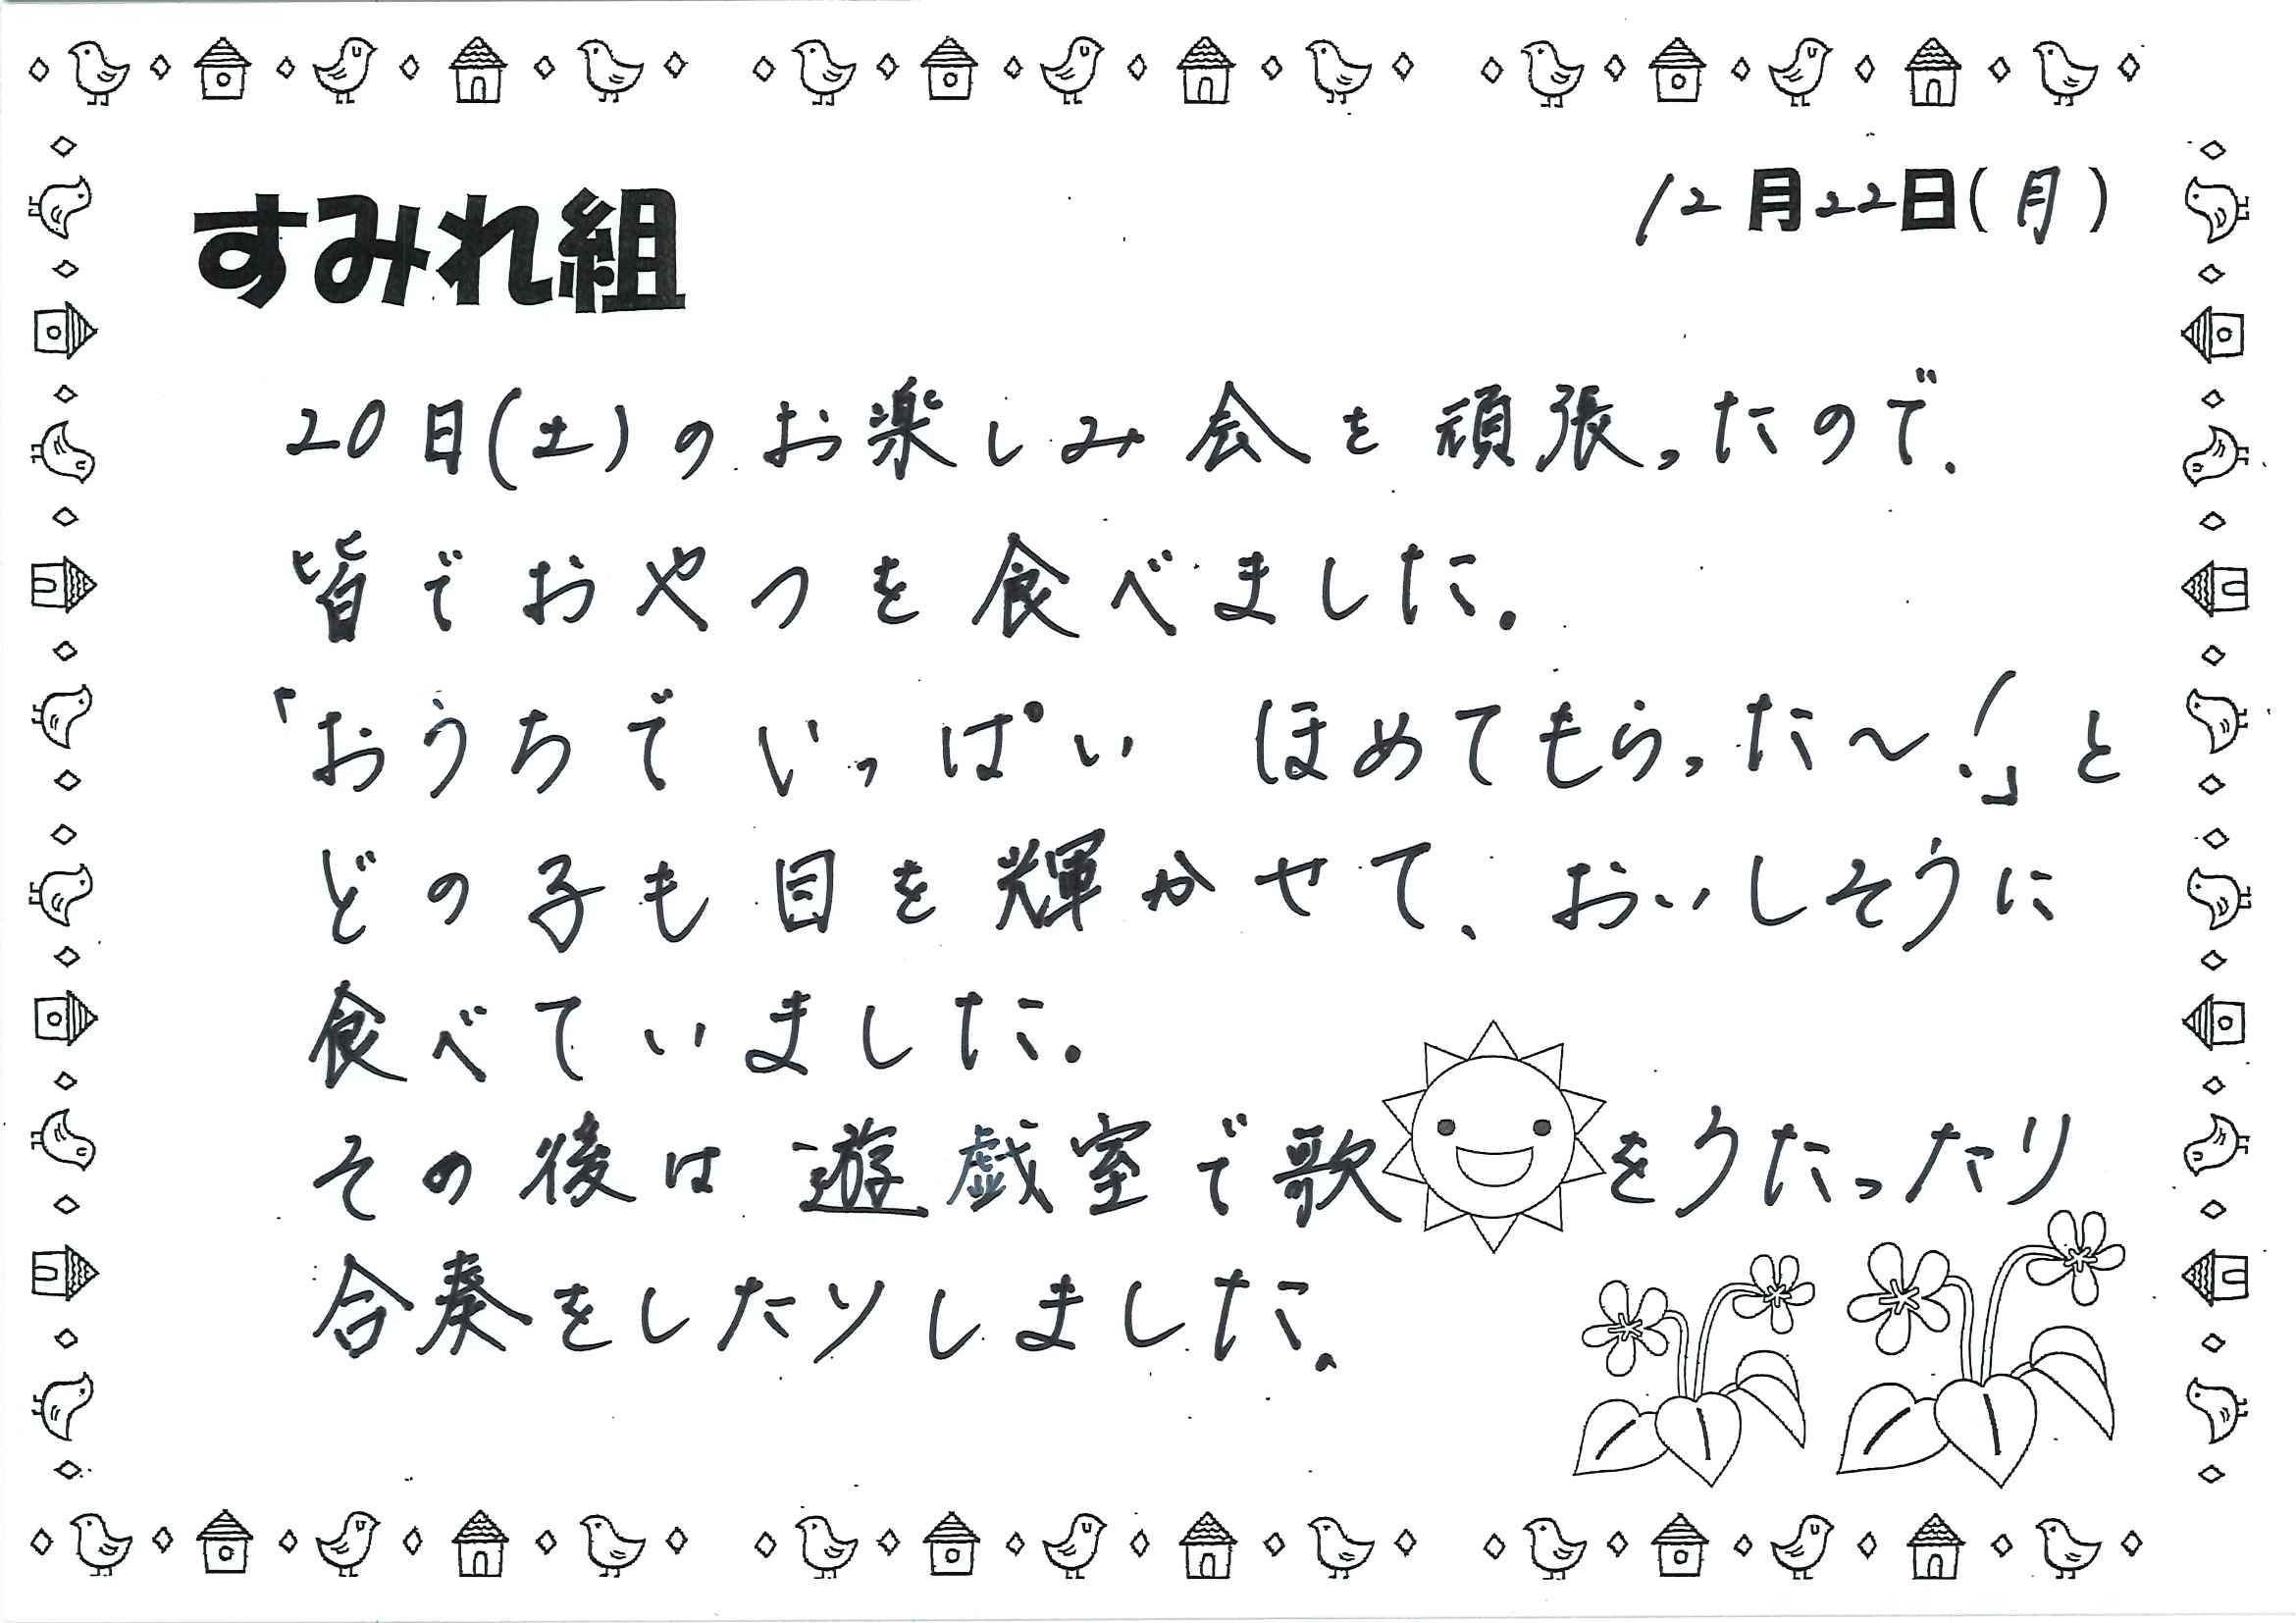 すみれ組
12月22日(月)
20日(土)のお楽しみ会を頑張ったので、
皆でおやつを食べました。
「おうちでいっぱい ほめてもらった〜!」と
どの子も目を輝かせて、おいしそうに
食べていました。
その後は遊戯室で歌をうたったり
合奏をしたりしました。